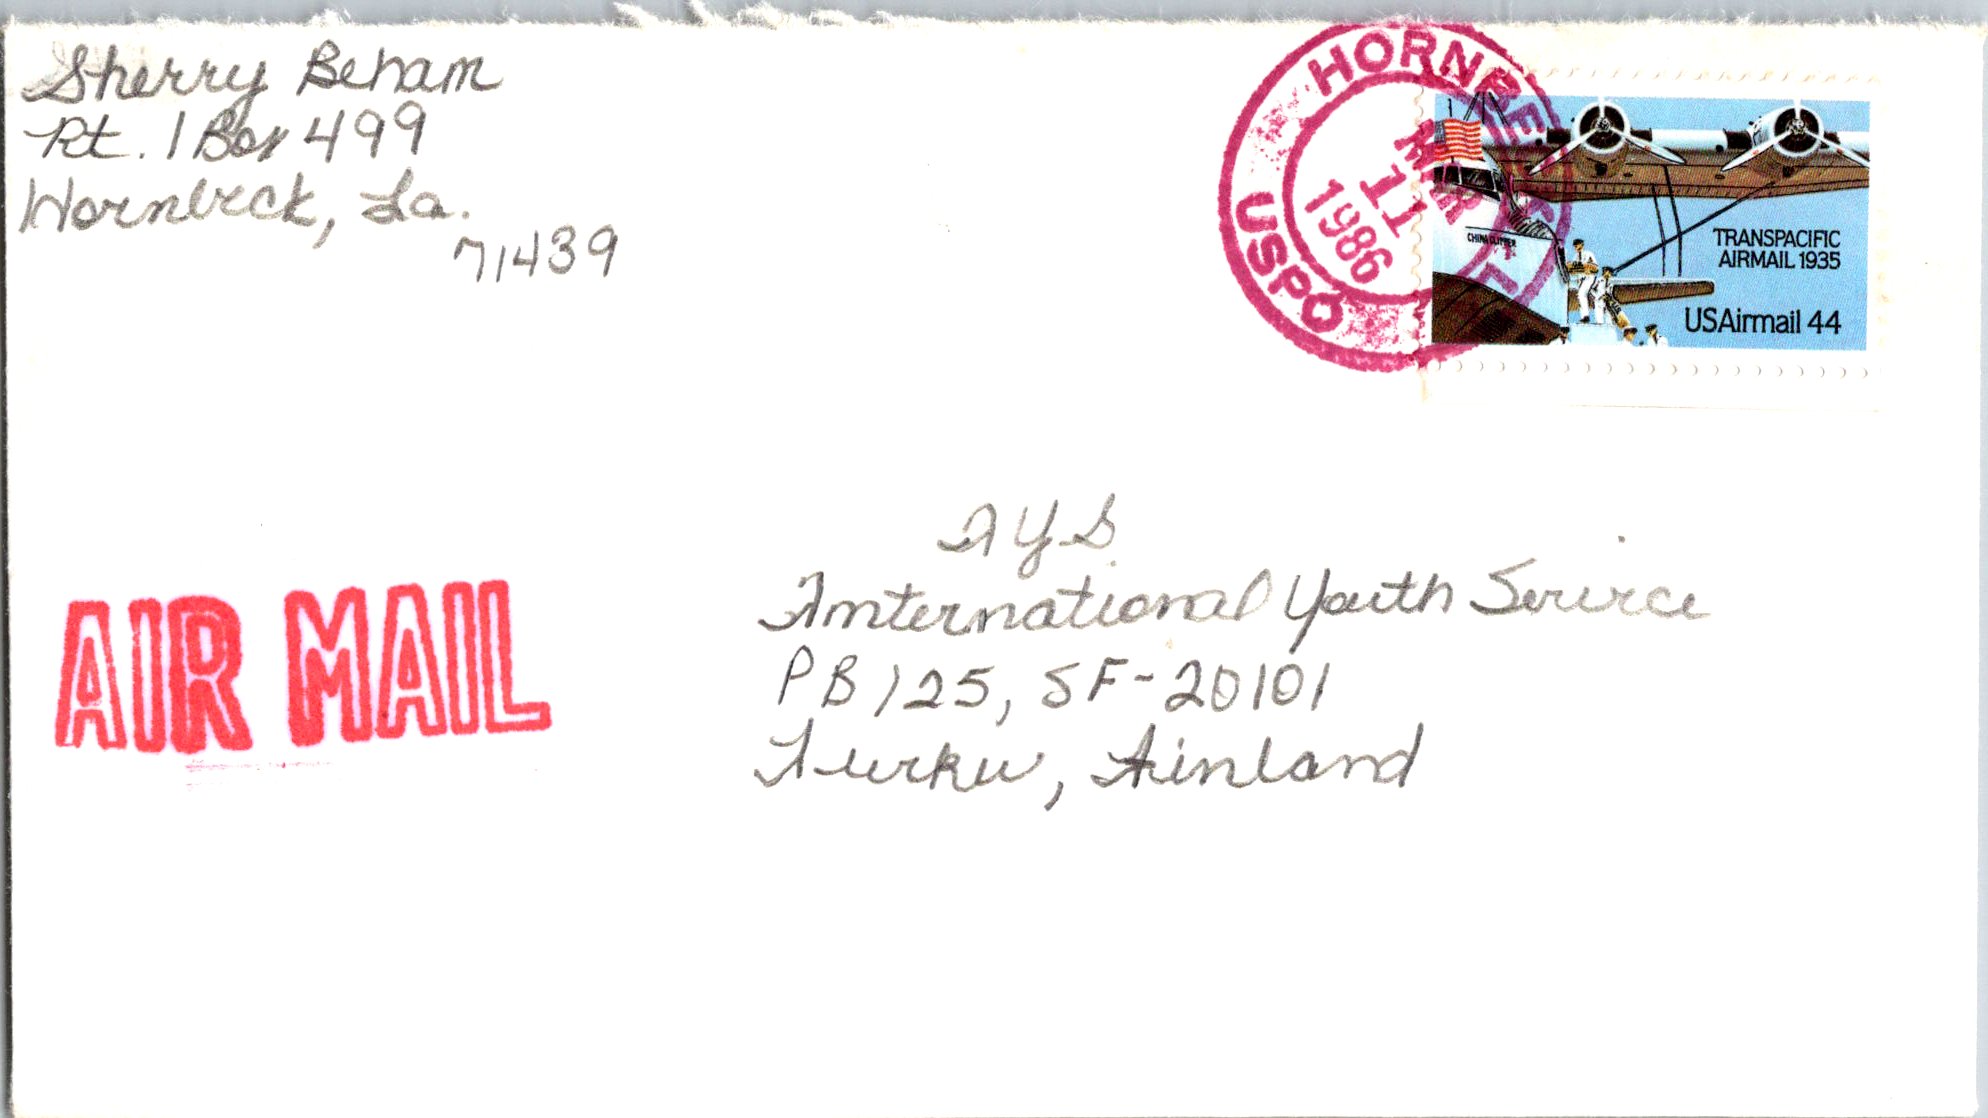 Sherry Beham
Rt. 1 Box 499
Hornbeck, La.
71439
HORNBECK LA
USPO
MAR
11
1986
CHINA CLIPPER
TRANSPACIFIC
AIRMAIL 1935
USAirmail 44
AIR MAIL
IYS
International Youth Service
PB 125, SF-20101
Turku, Finland